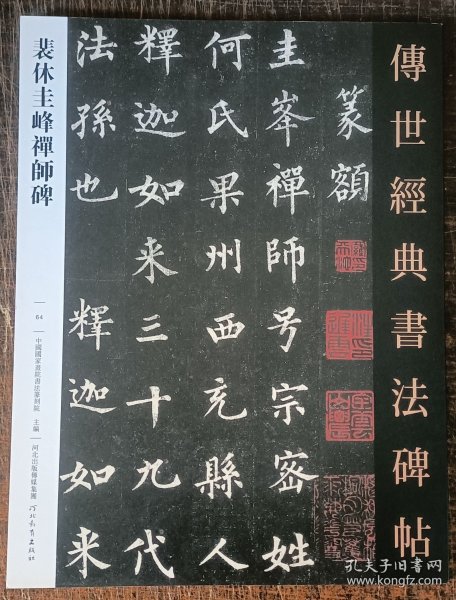 傳世經典書法碑帖
篆額
圭峯禪師号宗密姓
何氏果州西充縣人
釋迦如来三十九代
法孫也 釋迦如来
裴休圭峰禪師碑
64
中國國家畫院書法篆刻院 主編
河北出版傳媒集團 河北教育出版社
孔夫子旧书网
www.kongfz.com